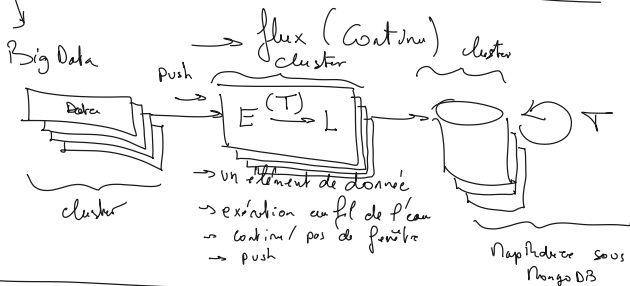 → flux (Continu)
Big Data
push
cluster
cluster
Data
E (T) → L
T
cluster
→ un élément de donnée
→ exécution au fil de l'eau
→ continu / pas de fenêtre
→ push
MapReduce sous
MongoDB